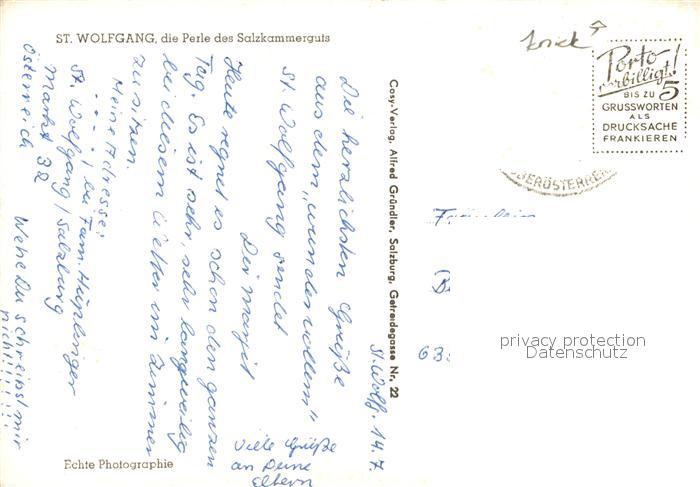 ST. WOLFGANG, die Perle des Salzkammerguts
St. Wolfg. 14.7.
Die herzlichsten Grüße
aus dem „wundervollem"
St. Wolfgang sendet
Dir
Heute regnet es schon den ganzen
Tag. Es ist sehr, sehr langweilig
bei diesem Wetter im Zimmer
zu sitzen.
Meine Adresse:
bei Fam. Hüplinger
St. Wolfgang / Salzburg
Markt 32
Österreich
Wehe Du schreibst mir
nicht!!!!!!!
Viele Grüße
an Deine
Eltern
Echte Photographie
Cosy-Verlag, Alfred Gründler, Salzburg, Getreidegasse Nr. 22
Porto
verbilligt!
BIS ZU 5
GRUSSWORTEN
ALS
DRUCKSACHE
FRANKIEREN
BERÖSTERRE
63
privacy protection
Datenschutz